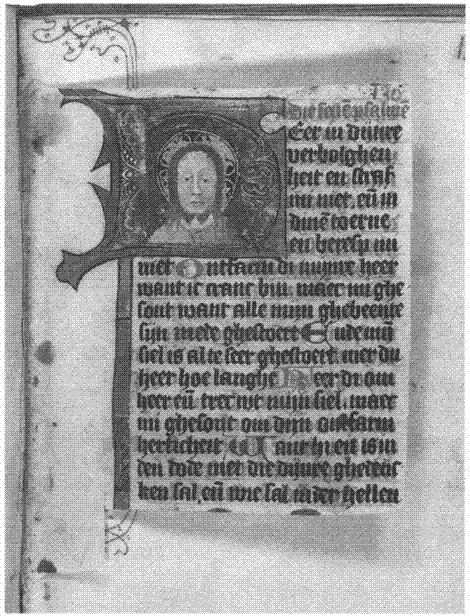 Die seuē psalmē
Eer in dijnre
verbolghen
heit en straf
mi niet. eñ in
dinē toerne
en beresp mi
niet Ontfarm di mijnre heer
want ic cranc bin. maec mi ghe
sont want alle mijn ghebeente
sijn mede ghestoert Ende mijn
siel is al te seer ghestoert. mer du
heer hoe langhe Keer di om
heer eñ trec wt mijn siel. maec
mi ghesont om dijn ontfarm
herticheit Want hi en is in
den dode niet die dijnre ghedenc
ken sal. eñ wie sal in der hellen